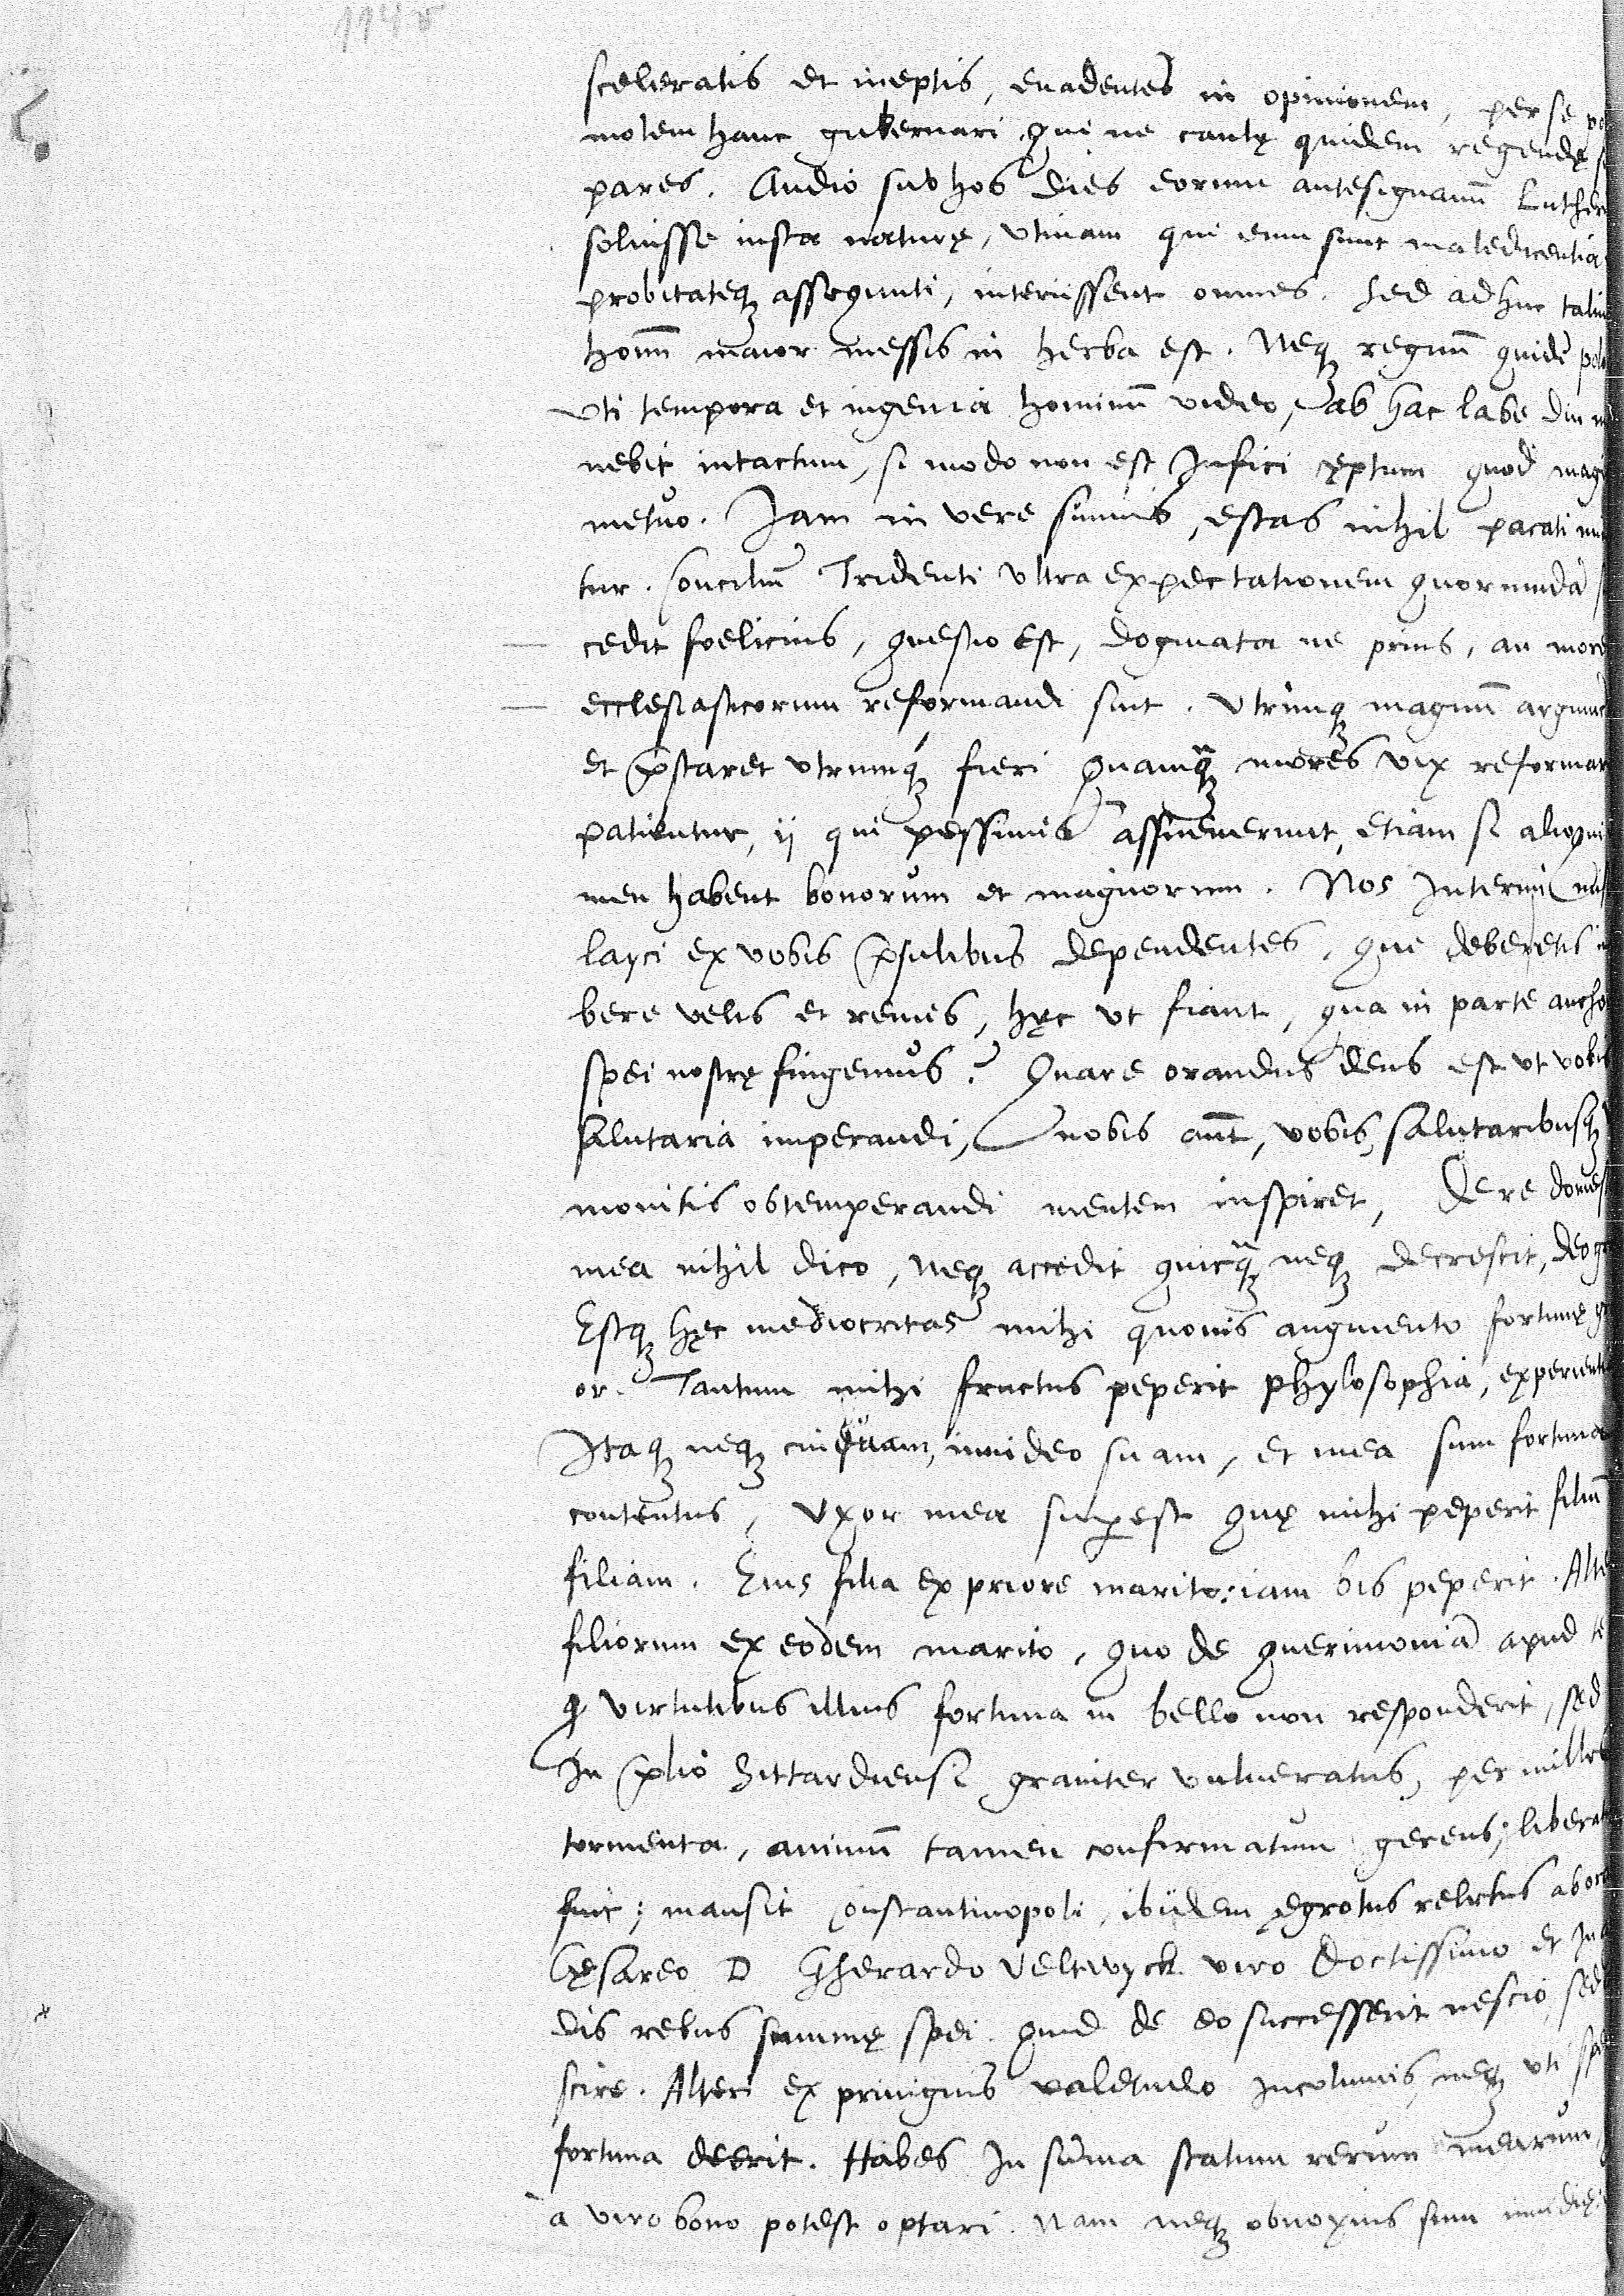 sceleratis et ineptis, euadentes in opinionem, per se
molem hanc gubernari, qui ne caulę quidem regendę
pares. Audio sub hos dies eorum antesignanū Luther
soluisse iusta naturę, vtinam qui eum sunt maledicentia
probitateqʒ assequuti, interiissent omnes. Sed adhuc taliu
homīn maior messis in herba est. Neqʒ regnū quidē pol
vti tempora et ingenia hominū video, ab hac labe diu
nebit intactum, si modo non est Infici cęptum quod magi
metuo. Jam in vere sumus, ęstas nihil pacati
tur. Conciliū Tridenti vltra expectationem quorundā
cedit foelicius, questio est, dogmata ne prius, an more
ecclesiasticorum reformandi sint. Vtrinqʒ magnū argum
et p̄staret vtrumqʒ fieri quamqʒ mores vix reformar
patientur, ij qui pessimis assueuerunt, etiam si alioqui
men habent bonorum et magnorum. Nos Interim
layci ex vobis p̄sulibus dependentes, qui deberetis in
bere velis et remis, hęc vt fiant, qua in parte ancho
spei nostrę fingemus? Quare orandus deus est vt vobis
salutaria imperandi, nobis aūt, vobis, salutaribusqʒ
monitis obtemperandi mentem inspiret, De re domes
mea nihil dico, neqʒ accedit quicqʒ neqʒ decrescit, deo g
Estqʒ hęc mediocritas mihi quouis augmento fortunę
or. Tantum mihi fructus peperit phylosophia, experienti
Itaqʒ neqʒ cuiquam, inuideo suam, et mea sum fortuna
contentus, Vxor mea supest quę mihi peperit filiū
filiam. Eius filia ex priore marito, iam bis peperit. Alte
filiorum ex eodem marito, quo de querimoniā apud te
q virtutibus illius fortuna in bello non responderit, sed
In p̄lio Sittardiensi grauiter vulneratus, per mille
tormenta, animū tamen confirmatum gerens, libera
fuit; mansit Constantinopoli, ibidem egrotus relictus ab or
Cęsareo D Gherardo Veltwyck viro doctissimo et In
dis rebus summę spei. Quid de eo successerit nescio, sed
scire. Alteri ex priuignis valetudo Incolumis, neqʒ vti
fortuna deerit. Habes In sūma statum rerum mearum,
a viro bono potest optari. Nam neqʒ obnoxius sum inuidię